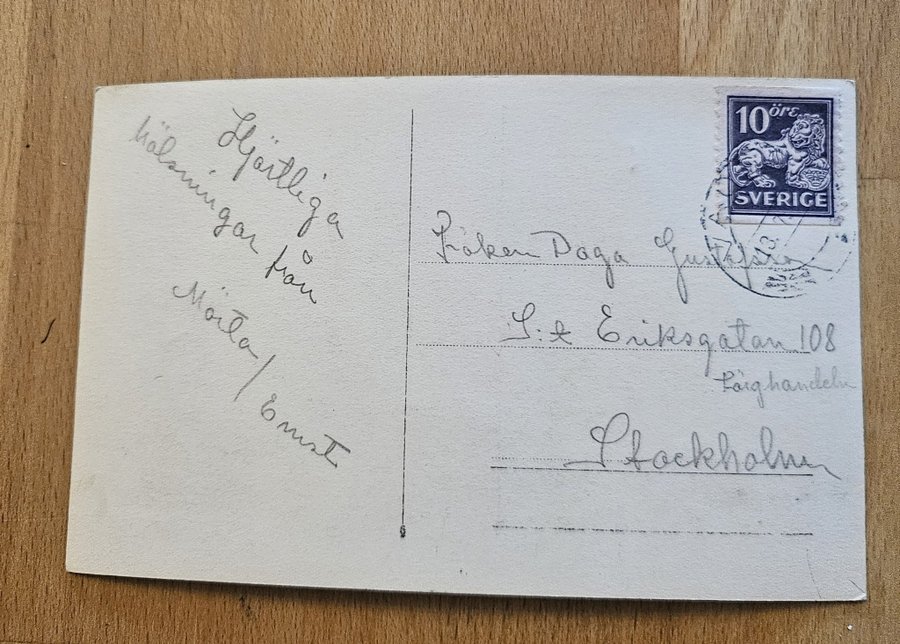 Hjärtliga
hälsningar från
Märta / Ernst
10 öre
SVERIGE
Fröken Daga Gustafsson
S:t Eriksgatan 108
Färghandeln
Stockholm